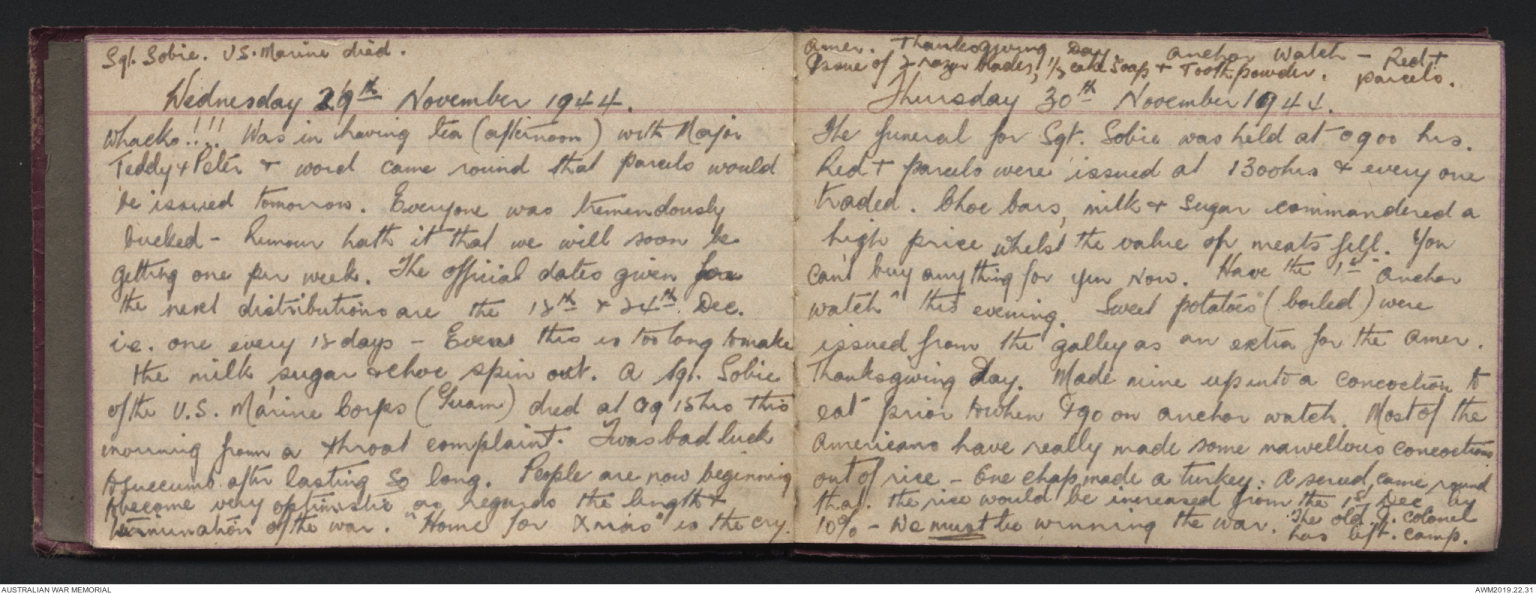 Sgt. Sobie. U.S. Marine died.
Wednesday 29th November 1944.
Whacko!!! Was in having tea (afternoon) with Major
Teddy & Peter & word came round that parcels would
be issued tomorrow. Everyone was tremendously
bucked - Rumour hath it that we will soon be
getting one per week. The official dates given for
the next distributions are the 12th & 24th Dec.
i.e. one every 12 days - Even this is too long to make
the milk, sugar & choc spin out. A Sgt. Sobie
of the U.S. Marine Corps (Guam) died at 0915hrs this
morning from a throat complaint. Twas bad luck
to succumb after lasting so long. People are now beginning
to become very optimistic as regards the length &
termination of the war. "Home for Xmas" is the cry.
Amer. Thanksgiving Day. Anchor Watch - Red +
Issue of 2 razor blades, 1/3 cake Soap & Toothpowder. parcels.
Thursday 30th November 1944.
The funeral for Sgt. Sobie was held at 0900 hrs.
Red + parcels were issued at 1300hrs & every one
traded. Choc bars, milk & sugar commandered a
high price whilst the value of meats fell. You
can't buy anything for yen now. Have the "1st Anchor
watch" this evening. Sweet potatoes (boiled) were
issued from the galley as an extra for the Amer.
Thanksgiving Day. Made mine up into a concoction to
eat prior to when I go on anchor watch. Most of the
Americans have really made some marvellous concoctions
out of rice - One chap made a turkey. A screed came round
that the rice would be increased from the 1st Dec by
10% - We must be winning the war. The old J. colonel
has left camp.
AUSTRALIAN WAR MEMORIAL
AWM2019.22.31